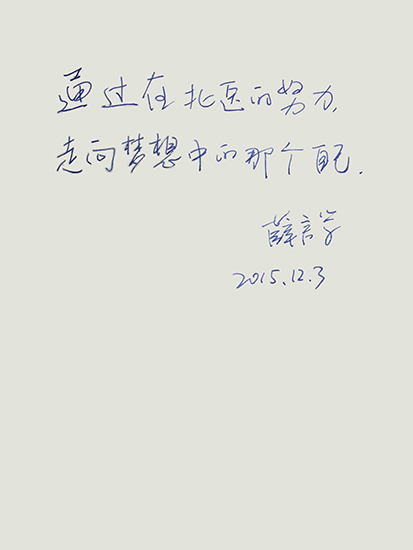 通过在北医的努力,
走向梦想中的那个自己.
薛言学
2015.12.3